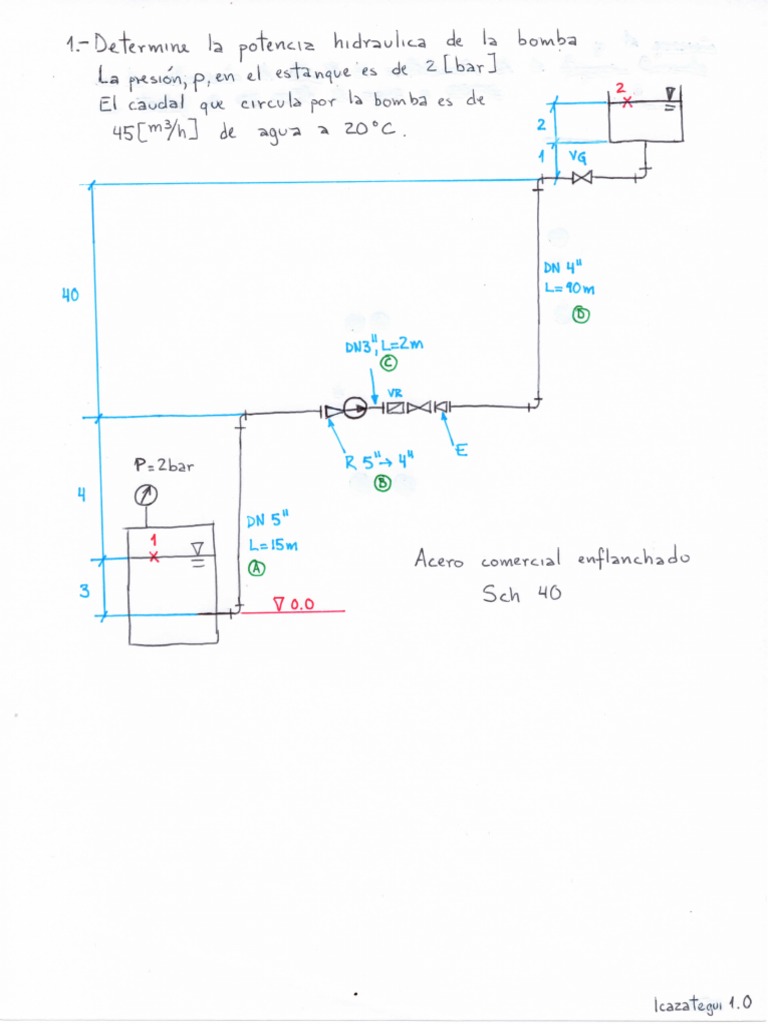 1.- Determine la potencia hidraulica de la bomba
La presión, p, en el estanque es de 2 [bar]
El caudal que circula por la bomba es de
45 [m³/h] de agua a 20°C.
2
2
1
VG
40
DN 4"
L=90m
D
DN3", L=2m
C
VR
R 5"→4"
B
E
P=2bar
4
DN 5"
L=15m
A
1
3
∇ 0.0
Acero comercial enflanchado
Sch 40
Icazategui 1.0